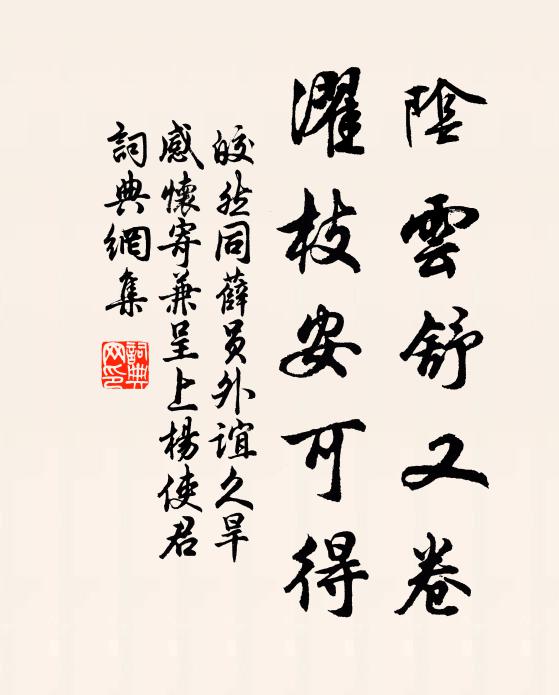 陰雲舒又卷
濯枝安可得
皎然同薛員外誼久旱
感懷寄兼呈上楊使君
詞典網集
詞典網印